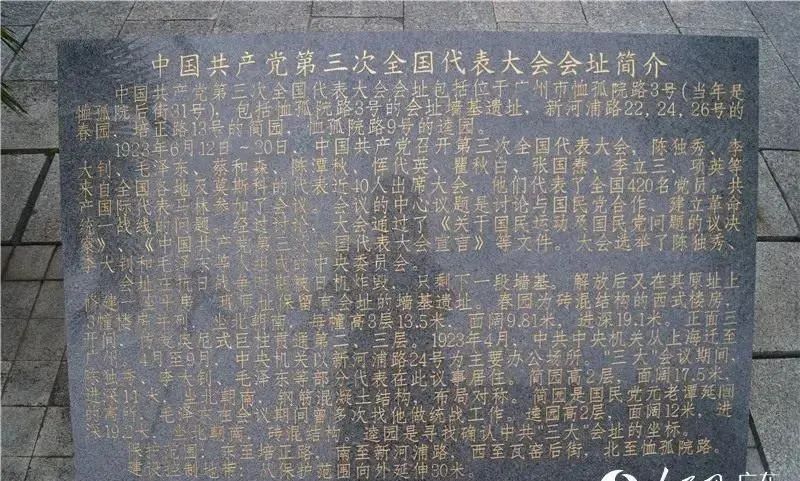 中国共产党第三次全国代表大会会址简介
中国共产党第三次全国代表大会会址包括位于广州市恤孤院路3号(当年是
恤孤院后街31号),包括恤孤院路3号的会址墙基遗址,新河浦路22,24,26号的
春园,培正路13号的简园,恤孤院路9号的逵园。
1923年6月12日~20日,中国共产党召开第三次全国代表大会,陈独秀、李
大钊、毛泽东、蔡和森、陈潭秋、恽代英、瞿秋白、张国焘、李立三、项英等
来自全国各地及莫斯科的代表近40人出席大会,他们代表了全国420名党员。共
产国际代表马林参加了会议。会议的中心议题是讨论与国民党合作、建立革命
统一战线的问题。大会通过了《关于国民运动及国民党问题的议决
案》、《中国共产党第三次全国代表大会宣言》等文件。大会选举了陈独秀、
李大钊、
日机炸毁,只剩下一段墙基。解放后又在其原址上
修建
保留会址的墙基遗址。春园为砖混结构的西式楼房,
3幢
坐北朝南,每幢高3层13.5米,面阔9.81米,进深19.1米。正面三
1923年4月,中共中央机关从上海迁至
广州,4月至9月,中央机关以新河浦路24号为主要办公场所。"三大"会议期间,
陈独秀、李大钊、毛泽东等部分代表在此议事居住。简园高2层,面阔17.5米,
进深11米,坐北朝南,钢筋混凝土结构,布局对称。简园是国民党元老谭延闿
的寓所,毛泽东在会议期间曾多次找他做统战工作。逵园高2层,面阔12米,进
深19.2米,坐北朝南,砖混结构。逵园是寻找确认中共"三大"会址的坐标。
保护范围:东至培正路,南至新河浦路,西至瓦窑后街,北至恤孤院路。
建设控制地带:从保护范围向外延伸30米。